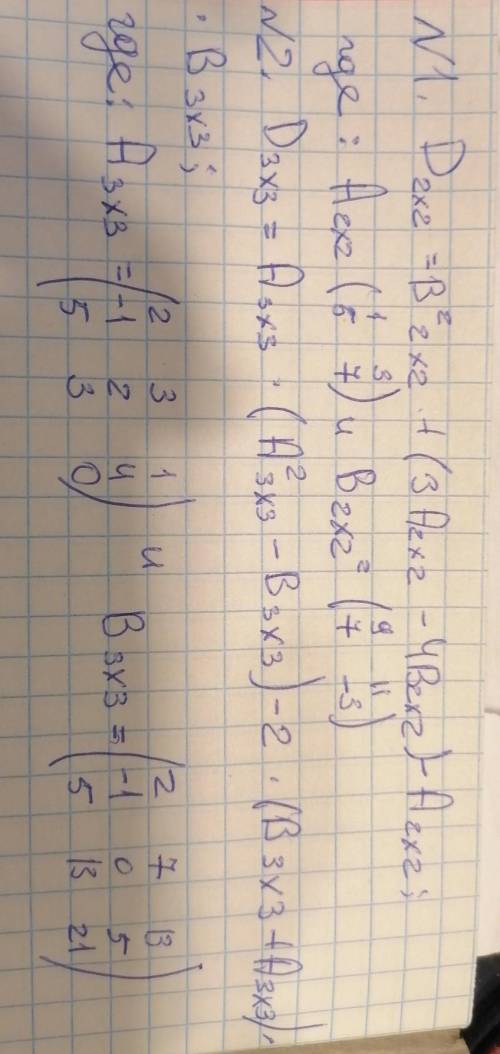 N1. D2x2 = B²2x2 + (3A2x2 - 4B2x2) - A2x2;
где: A2x2 (1 3
5 7) и B2x2 = (9 11
7 -3)
N2. D3x3 = A3x3 · (A²3x3 - B3x3) - 2 · (B3x3 + A3x3) ·
· B3x3;
где: A3x3 = (2 3 1
-1 2 4
5 3 0) и B3x3 = (2 7 13
-1 0 5
5 13 21)